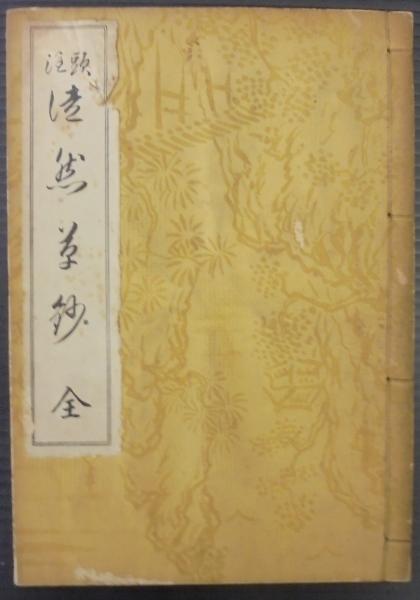 頭注
徒然草鈔 全